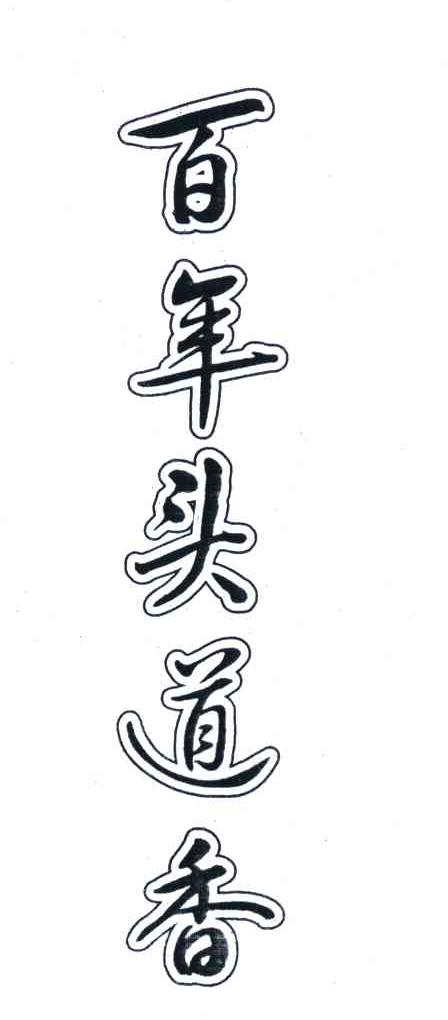 百年头道香